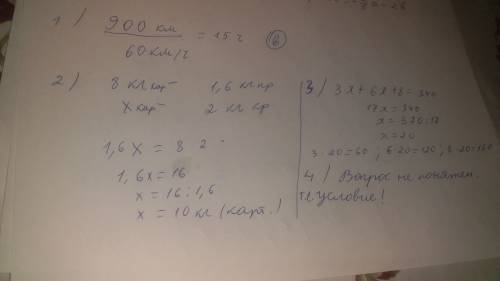 1) 900 км
60 км/ч
= 15 ч
(в)
2) 8 кг карт 1,6 кг кр
x карт 2 кг кр
1,6 x = 8 2
1,6x = 16
x = 16 : 1,6
x = 10 кг (карт.)
3) 3x + 6x + 8 = 340
17x = 340
x = 340 : 17
x = 20
3·20=60 ; 6·20=120 ; 8·20=160
4) Вопрос не понятен.
т.е. условие!